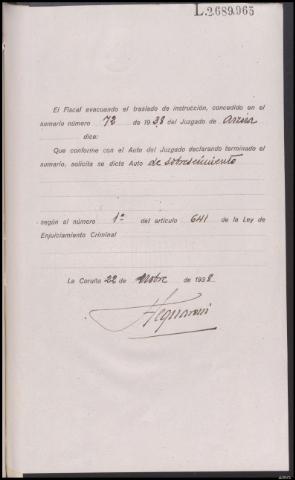 L.2689.065
El Fiscal evacuando el traslado de instrucción, concedido en el
sumario número 72 de 1938 del Juzgado de Arzúa
dice:
Que conforme con el Auto del Juzgado declarando terminado el
sumario, solicita se dicte Auto de sobreseimiento
según el número 1º del artículo 641 de la Ley de
Enjuiciamiento Criminal
La Coruña 22 de Nobre de 1938